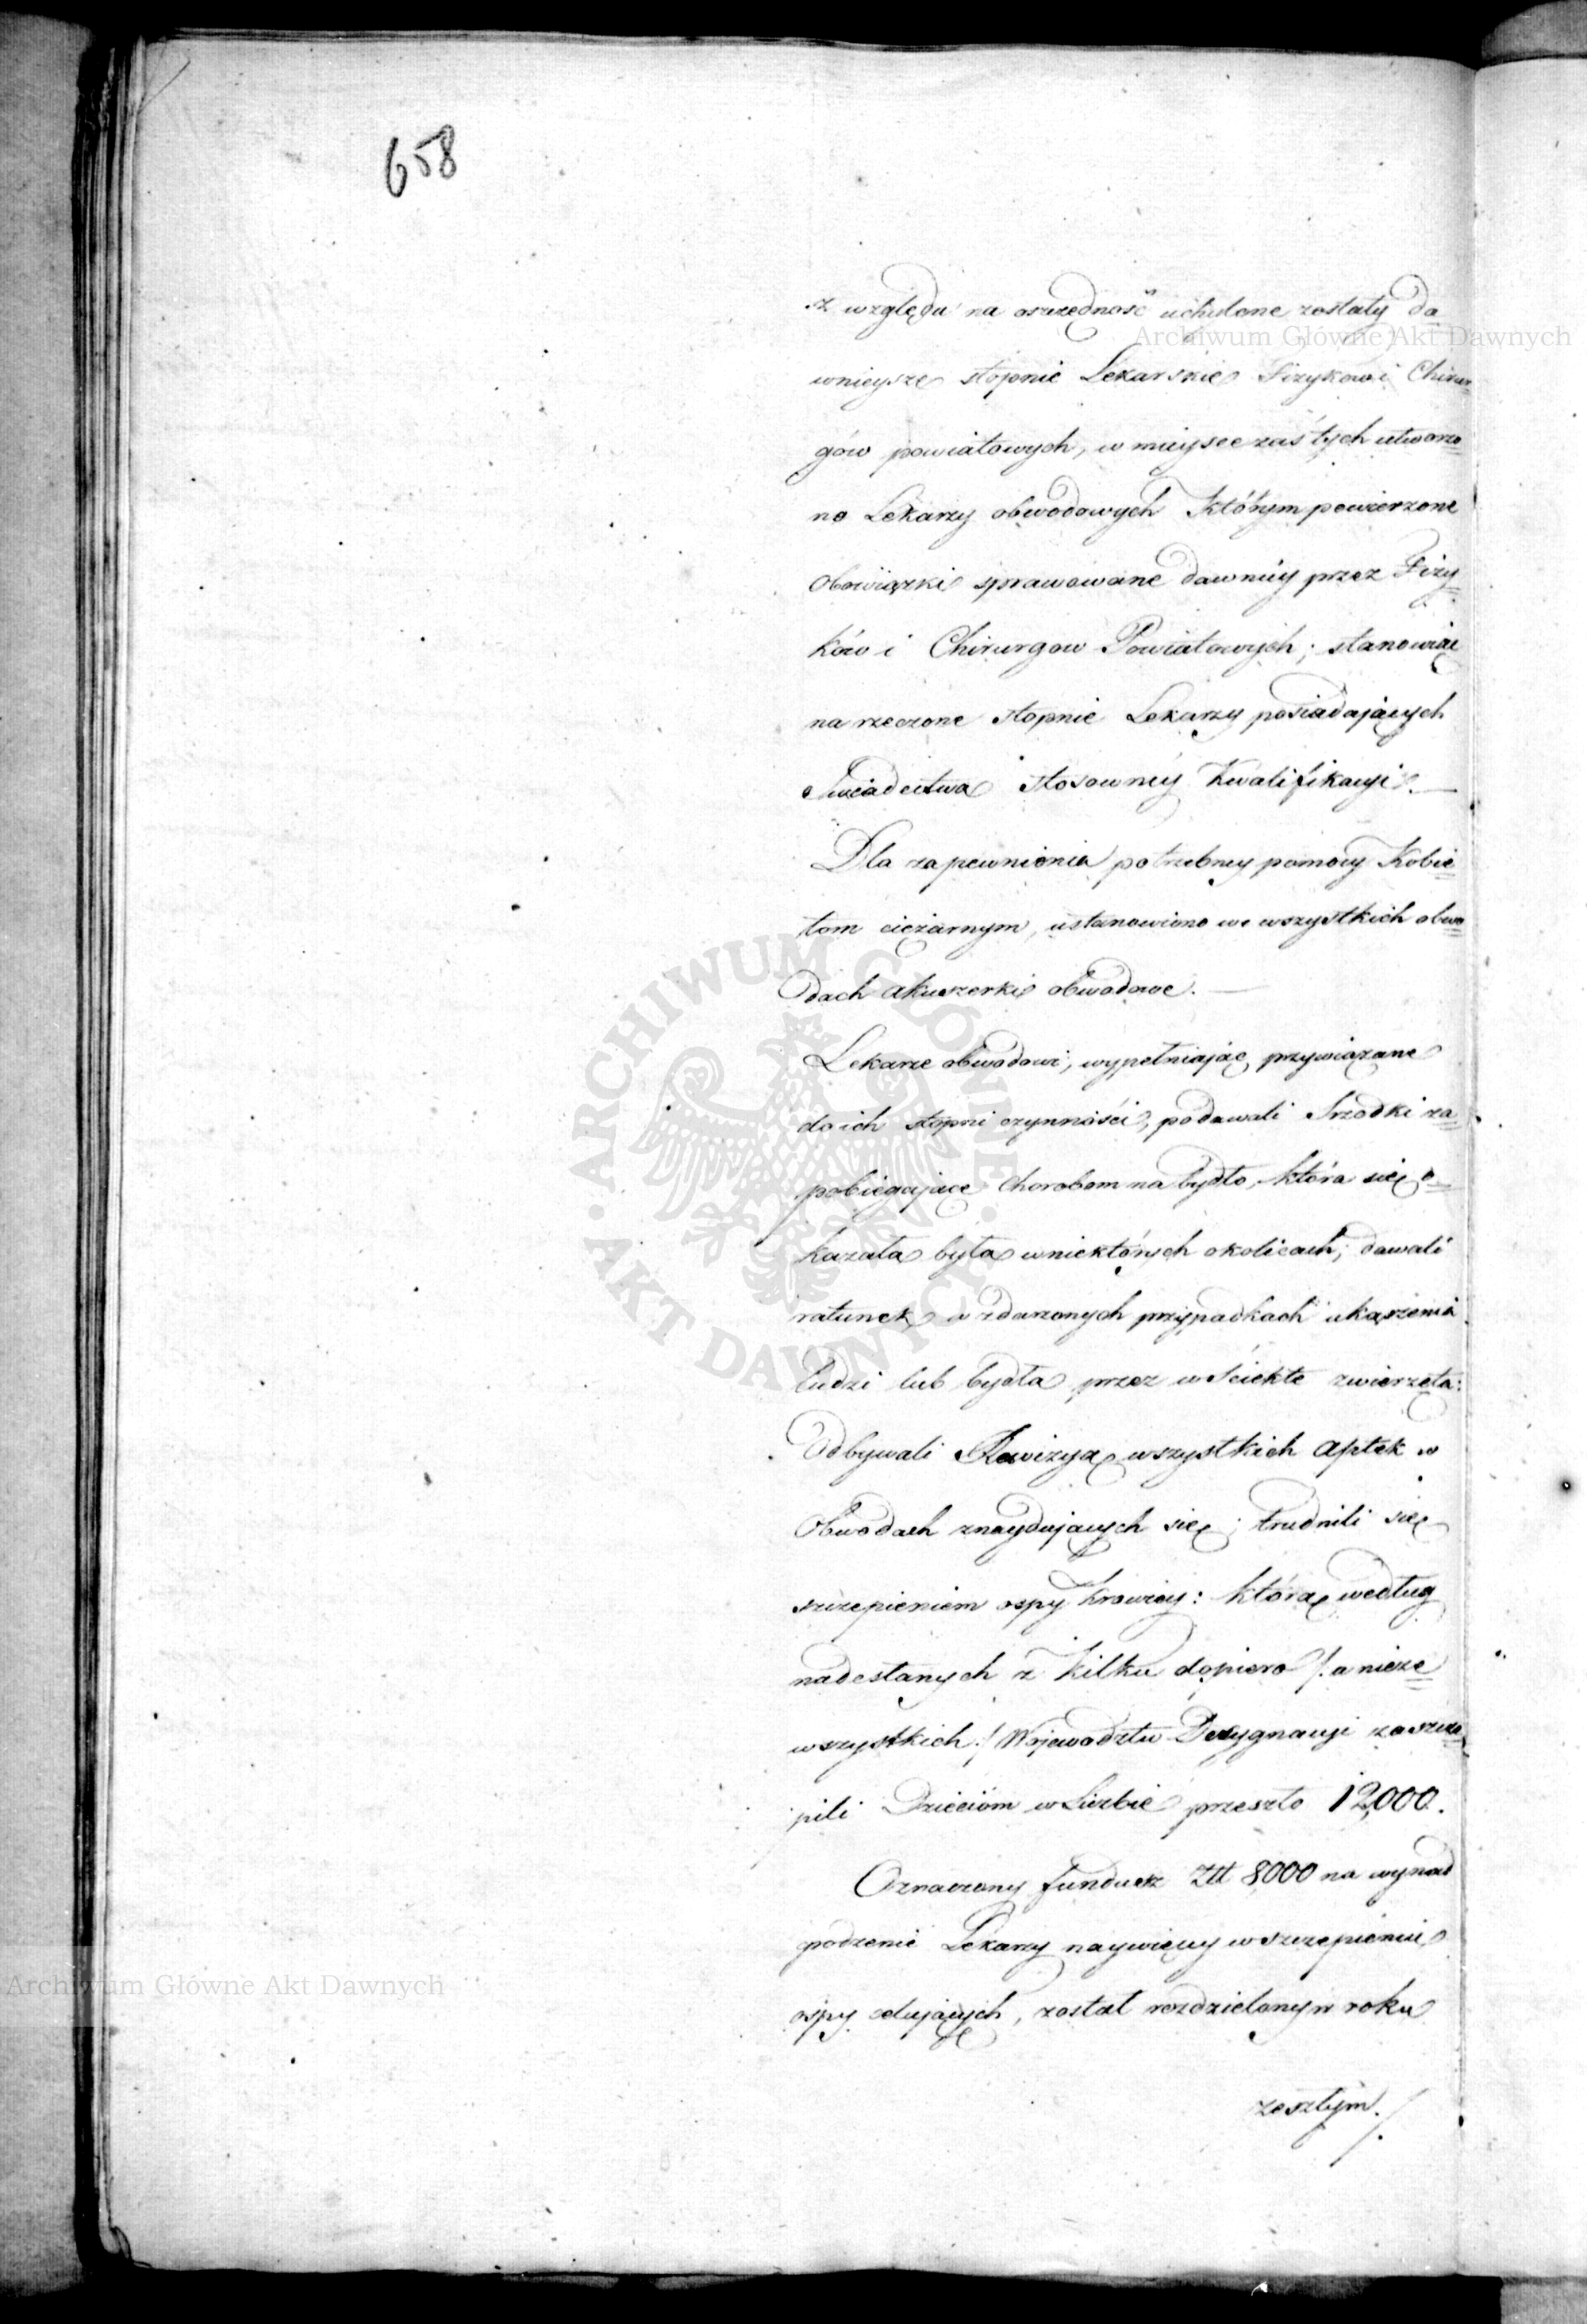 658
z względu na oszczędność uchylone zostały da=
wnieysze stopnie Lekarskie Fizykow i Chirur=
gów powiatowych, w mieysce zaś tych utworzo=
no Lekarzy obwodowych którym powierzone
obowiązki sprawowane dawniéy przez Fizy=
ków i Chirurgow Powiatowych; stanowiąc
na rzeczone stopnie Lekarzy posiadających
Swiadectwa stosownéy Kwalifikacyi. —
Dla zapewnienia potrzebney pomocy Kobie=
tom ciężarnym, ustanowiono we wszystkich obwo=
dach akuszerki obwodowe. —
Lekarze obwodowi, wypełniając przywiązane
do ich stopni czynności, podawali Srzodki za=
pobiegające chorobom na bydło, która się o=
kazała była w niektórych okolicach; dawali
ratunek w zdarzonych przypadkach ukąszenia
ludzi lub bydła przez wściekłe zwierzęta:
Odbywali Rewizyą wszystkich aptek w
Obwodach znayduiących się; trudnili się
szczepieniem ospy krowiey: którą według
nadesłanych z kilku dopiero /: a nie ze=
wszystkich :/ Wojewodztw Dezygnacyi zaszcze=
pili Dzieciom w Liczbie przeszło 12,000.
Oznaczony fundusz Złt 8000 na wynad
grodzenie Lekarzy naywięcey w szczepieniu
ospy celujących, został rozdzielony w roku
zeszłym./.
Archiwum Główne Akt Dawnych
ARCHIWUM GŁÓWNE · AKT DAWNYCH ·
Archiwum Główne Akt Dawnych